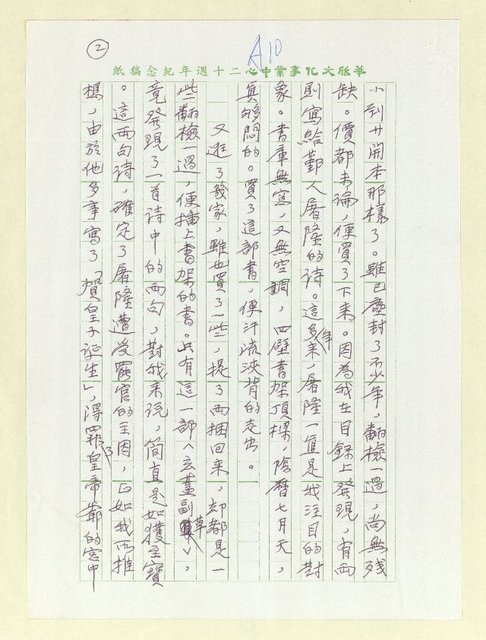 ②
A10
華服大化事業中心二十週年紀念稿紙
小到廿開本那樣了。雖已塵封了不少年,翻檢一過,尚無殘
缺。價都未論,便買了下來。因為我在目錄上發現,有兩
則寫給鄞人屠隆的詩。這多年來,屠隆一直是我注目的對
象。書庫無窗,又無空調,四壁書架頂樑,陰曆七月天,
真夠悶的。買了這部書,便汗流浹背的走出。
又逛了幾家,雖也買了一些,提了兩捆回來,却都是一
些翻檢一過,便插上書架的書。只有這一部〈玄蓋副草〉,
竟發現了一首詩中的兩句,對我來說,簡直是如獲至寶
。這兩句詩,確定了屠隆遭受罷官的主因,正如我所推
想,由於他多事寫了「賀皇子誕生」,得罪了皇帝爺的宮中